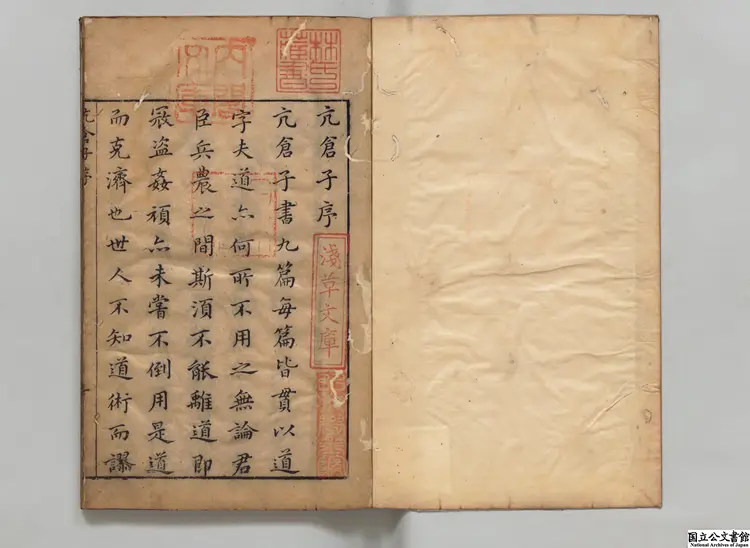 亢倉子序
亢倉子書九篇每篇皆貫以道
字夫道亦何所不用之無論君
臣兵農之間斯須不能離道即
冦盗姦頑亦未嘗不倒用是道
而克濟也世人不知道術而謬
亢倉子序
林氏藏書
淺草文庫
国立公文書館
National Archives of Japan